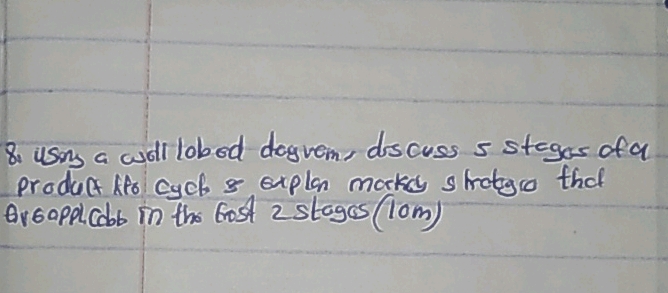 8. Using a well labed dagram, discuss 5 stages of a
product life cycle & explan market strateges that
are applcable in the first 2 stages (10m)